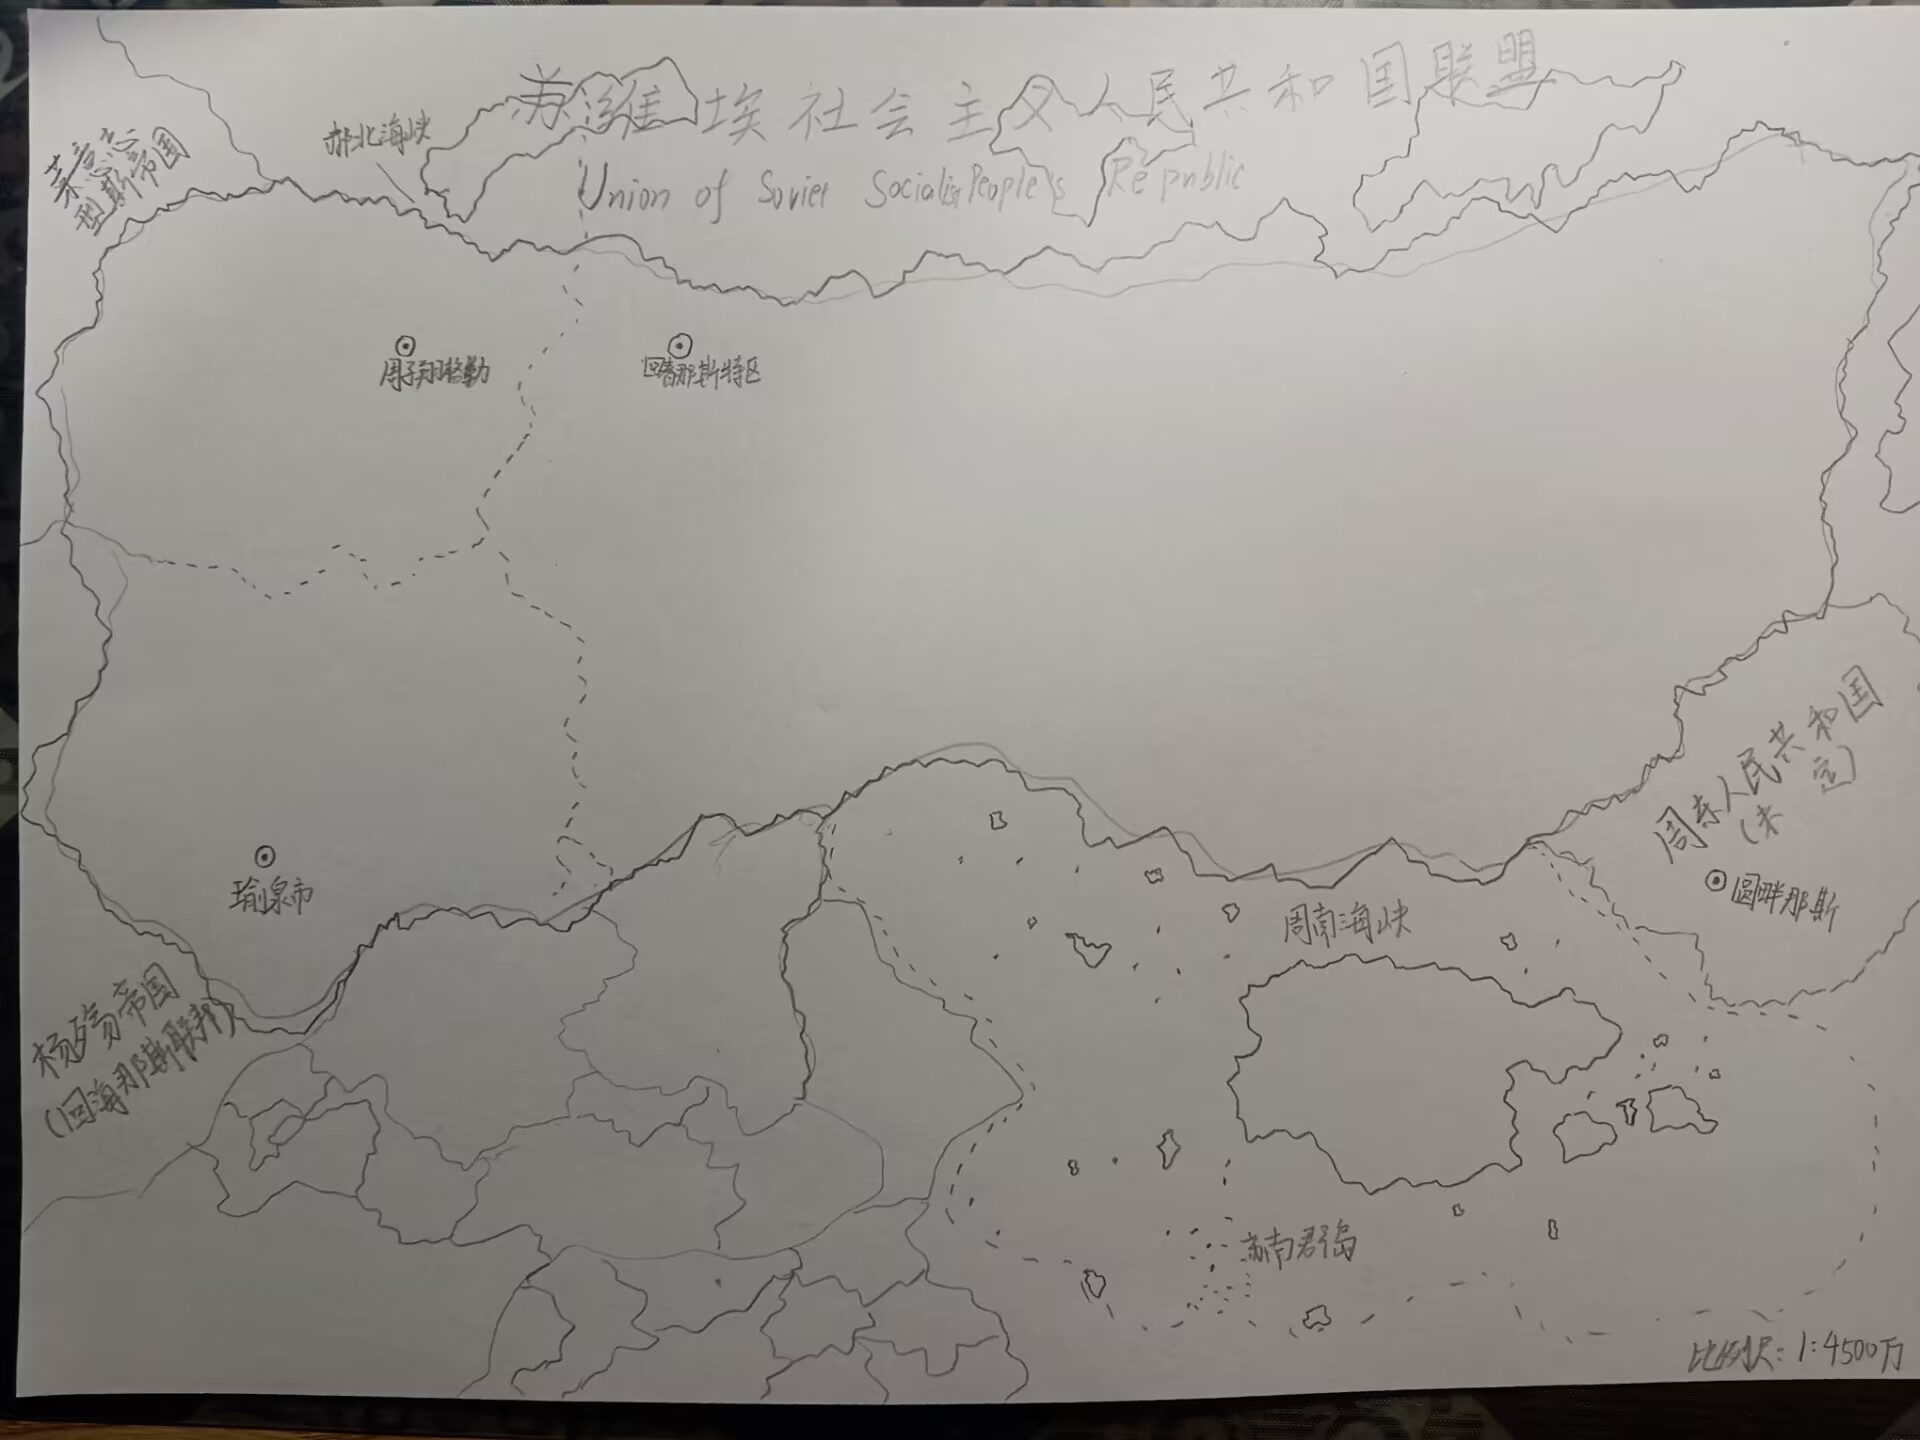 苏维埃社会主义人民共和国联盟
Union of Soviet Socialist People's Republic
莱意志
利斯帝国
北海峡
周子翔格勒
那斯特区
瑜泉市
帝国
(回海那斯联邦)
周东人民共和国
(未定)
圆畔那斯
周南海峡
南群岛
比例尺：1:4500万